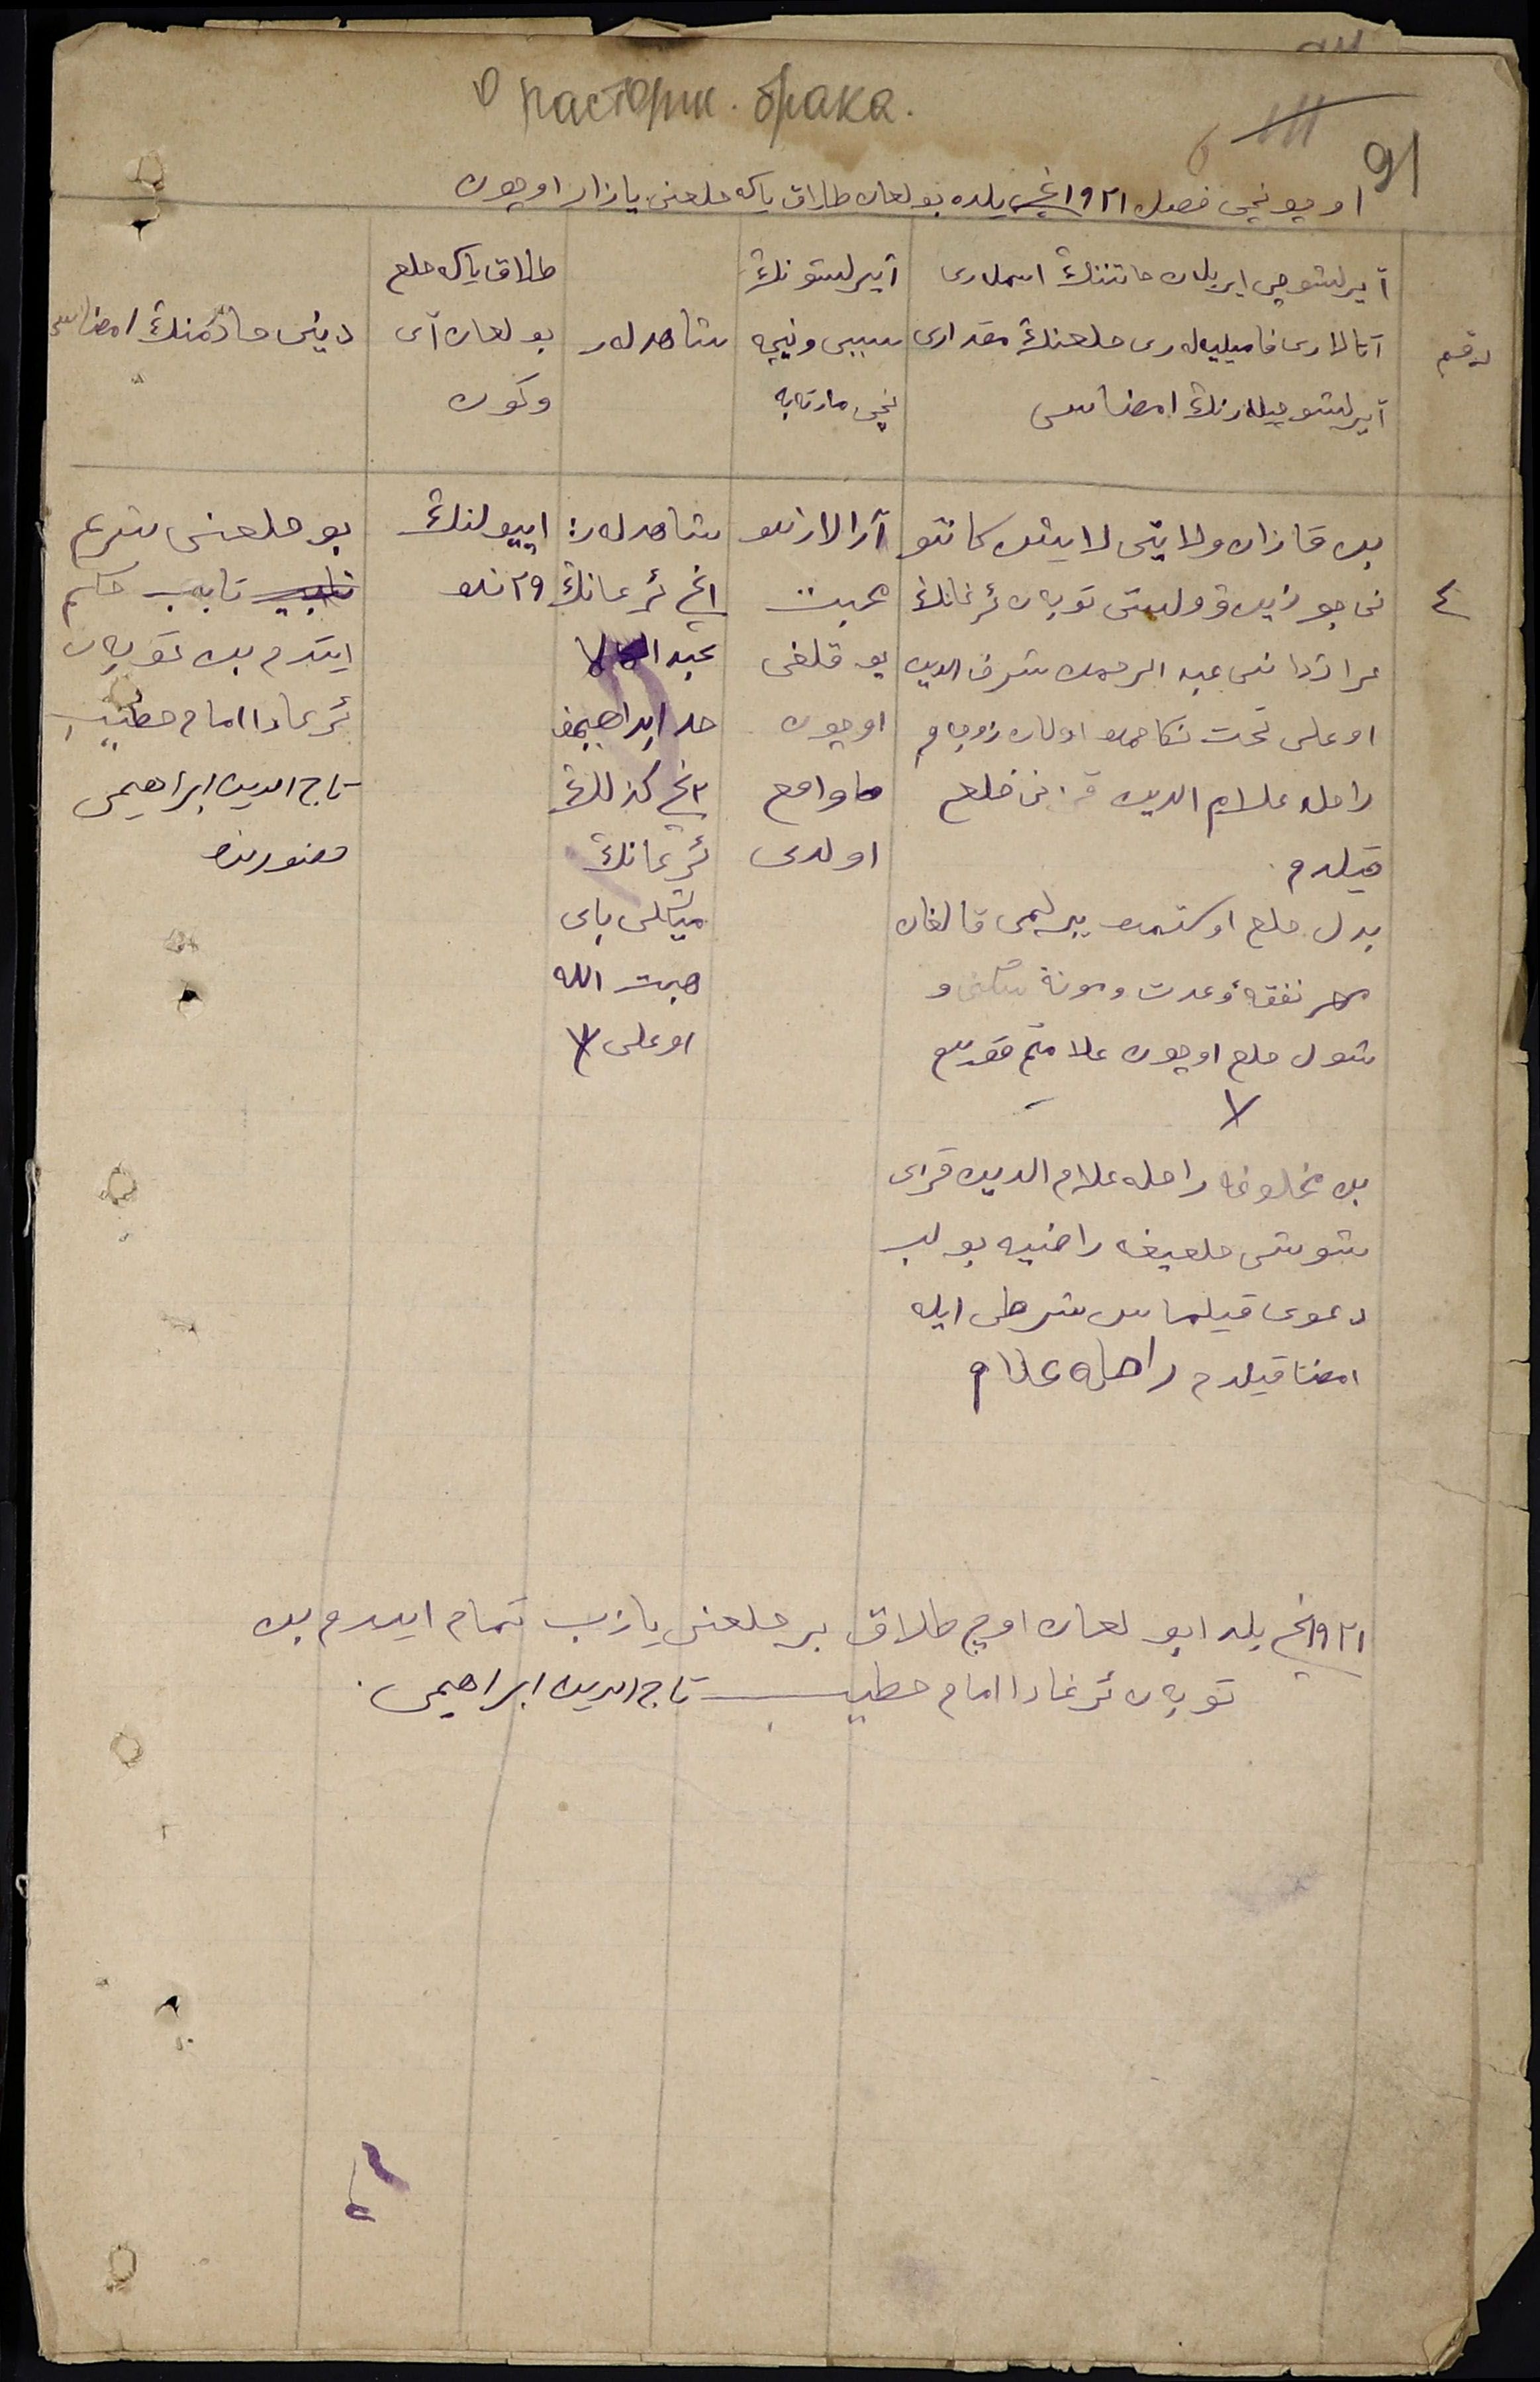 О расторж. брака.
91
اوچونچی فصل ١٩٢١نچی یلده بولغان طلاق یاکه خلعنی یازار اوچون
رقم
آیرلشوچی ایر بلان خاتننڭ اسملری
آتالاری فامیلیه‌لری خلعنڭ مقداری
آیرلشوچیلارنڭ امضاسی
آیرلشونڭ
سببی ونیچه
نچی مارتابه
شاهدلر
طلاق یاکه خلع
بولغان آی
وکون
دینی خادمنڭ امضاسی
٤
بن قازان ولایتی لایش کانتو
نی جوزین ولستی توبان
عبد الرحمن شرف الدین
اوغلی تحت نکاحمده اولان زوجه‌م
راحله علام الدین قزنی خلع
قیلدم.
بدل خلع اوکتمده بیرلمی قالغان
مهر نفقهٔ وعدت ومونة سکنی و
شول خلع اوچون علامتم قویدم
بن مخلوعه راحله علام الدین قزی
شوشی خلعیغه راضیه بولب
دعوی قیلماس شرطی ایله
امضا قیلدم راحله علام
آرالارنده
محبت
یوقلغی
اوچون
واقع
اولدی
شاهدلر:
١نچی
عبد
ابراهیمف
٢نچی کذلك
هبت الله
اوغلی
اییولنڭ
٢٩نده
بو خلعنی شرع
تابب حکم
ایتدم بن توبان
امام خطیب
تاج الدین ابراهیمی
حضورنده
١٩٢١نچی یلدا بولغان اوچ طلاق بر خلعنی یازب تمام ایتدم بن
توبان امام خطیب تاج الدین ابراهیمی.